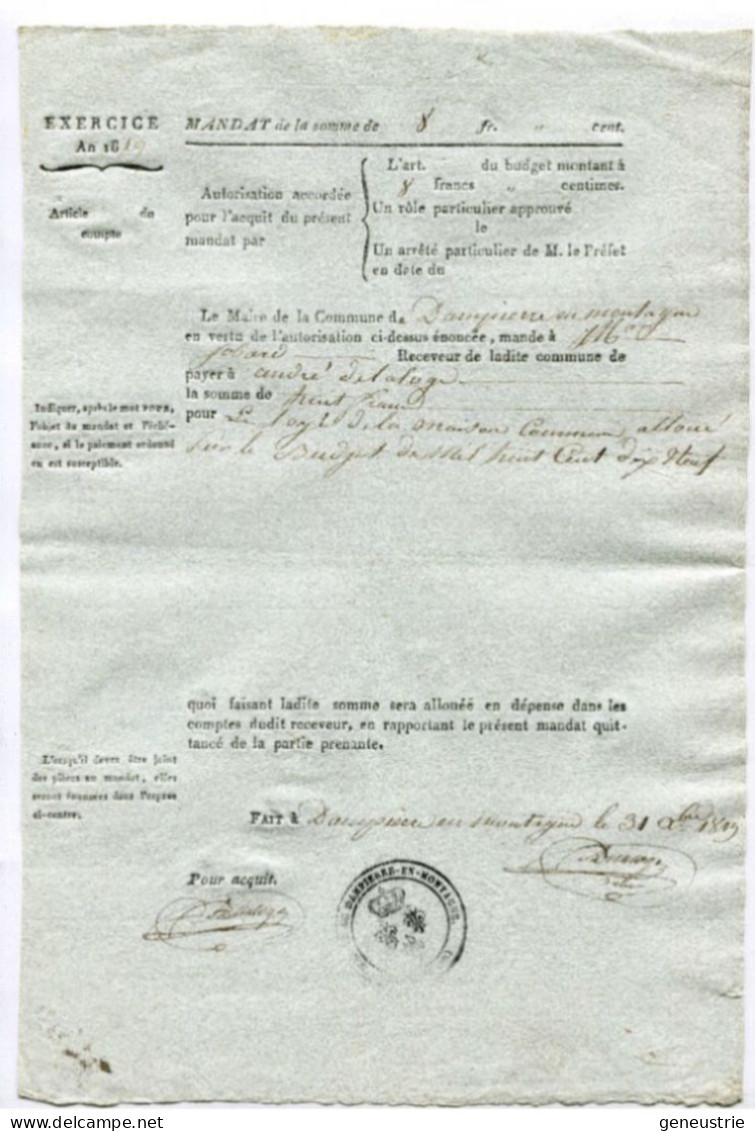 EXERCICE
An 1819
Article du
compte
MANDAT de la somme de 8 fr. " cent.
Autorisation accordée
pour l'acquit du présent
mandat par
L'art. du budget montant à
8 francs " centimes.
Un rôle particulier approuvé
le
Un arrêté particulier de M. le Préfet
en date du
Le Maire de la Commune de Dampierre en montagne
en vertu de l'autorisation ci-dessus énoncée, mande à
Receveur de ladite commune de
payer à andré
la somme de huit francs
pour Le loyé de la maison Commune alloué
sur le Budget de Mil huit Cent dix Neuf
Indiquer, après le mot POUR,
l'objet du mandat et l'éché-
ance, si le paiement ordonné
en est susceptible.
quoi faisant ladite somme sera allouée en dépense dans les
comptes dudit receveur, en rapportant le présent mandat quit-
tancé de la partie prenante.
Lorsqu'il devra être joint
des pièces au mandat, elles
seront énoncées dans l'espace
ci-contre.
FAIT à Dampierre en montagne le 31 Xbre 1819
Pour acquit.
DAMPIERRE-EN-MONTAGNE
geneustrie